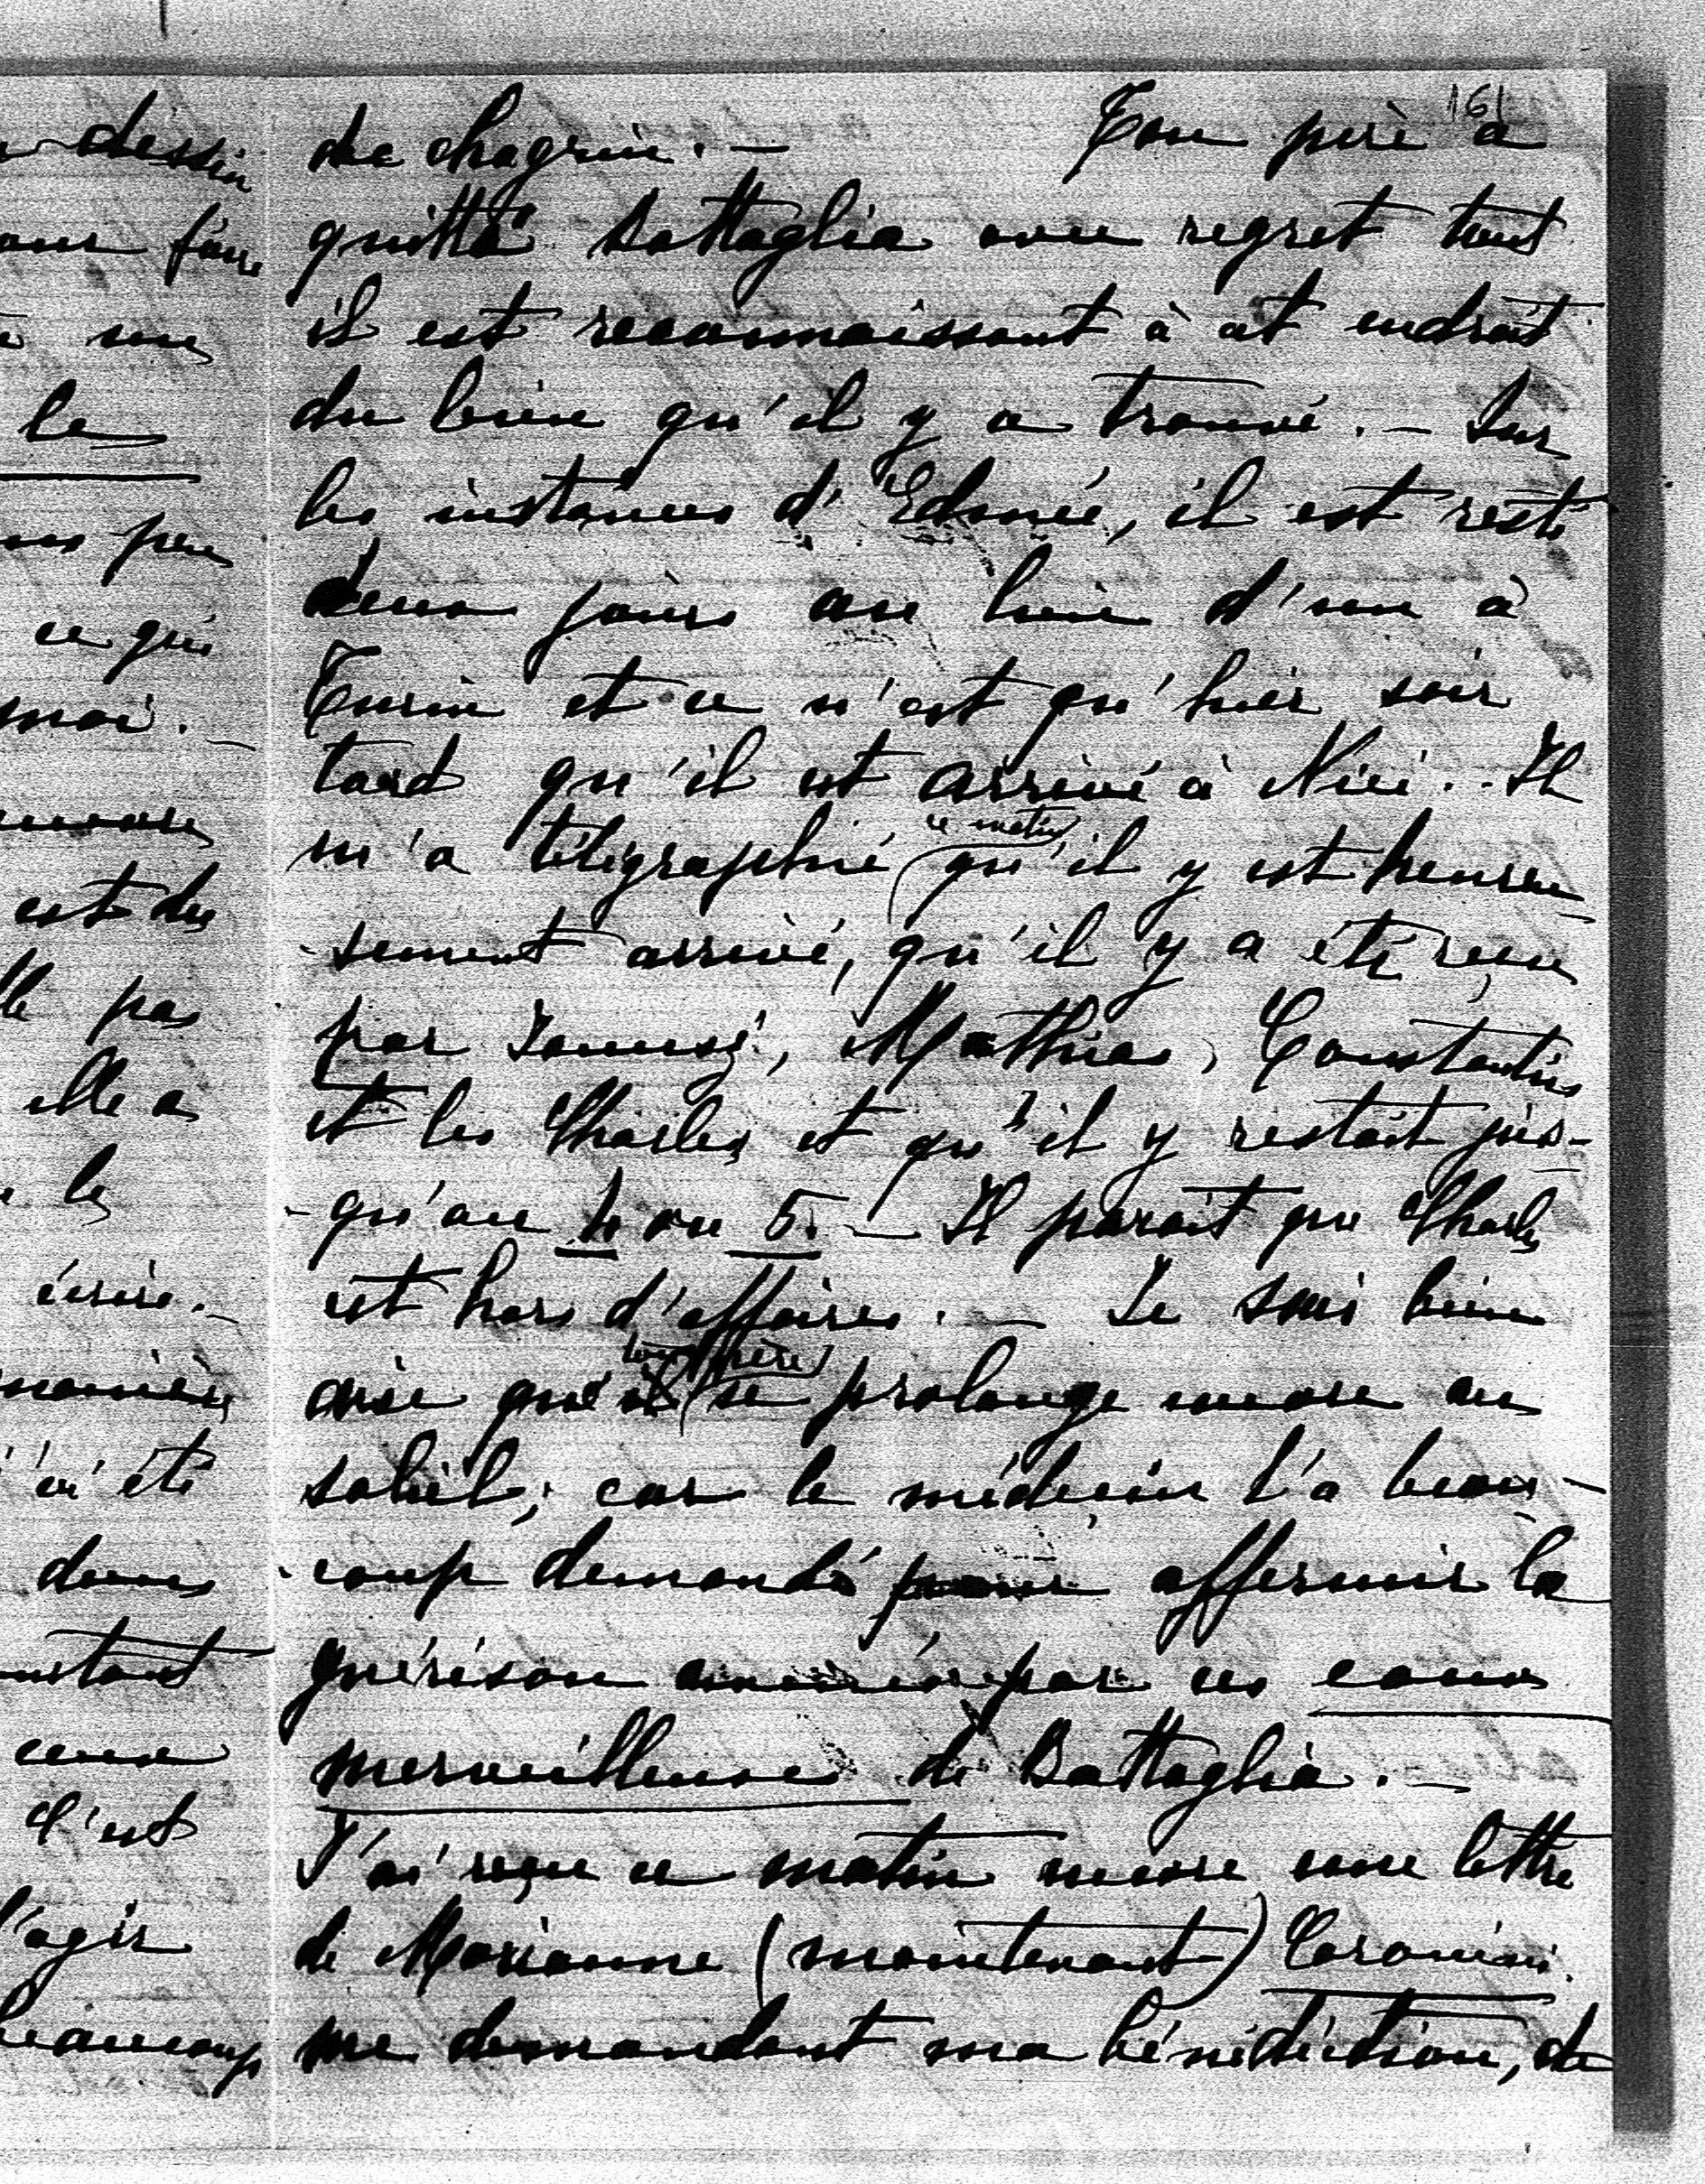 161
de chagrin. — Ton père a
quitté Battaglia avec regret tant
il est reconnaissant à cet endroit
du bien qu'il y a trouvé. — Sur
les instances d'Edmée, il est resté
deux jours au lieu d'un à
Turin et ce n'est qu'hier soir
tard qu'il est arrivé à Nice. . Il
m'a télégraphié ce matin qu'il y est heureu-
-sement arrivé, qu'il y a été reçu
par Mathias, Constantin
et les Charles et qu'il y restait jus-
-qu'au 4 ou 5. — Il parait que Charles
est hors d'affaires. — Je suis bien
aise que ton père se prolonge encore au
soleil; car le médecin l'a beau-
-coup demandé pour affermir la
guérison amenée par ces eaux
merveilleuses de Battaglia. —
J'ai reçu ce matin encore une lettre
de Marianne (maintenant) Coronini.
me demandant ma bénédiction, de
dessin
faire
le
peu
ce qui
moi. —
est des
pas
elle a
les
écrire. —
été
dans
ceux
C'est
l'agir
beaucoup